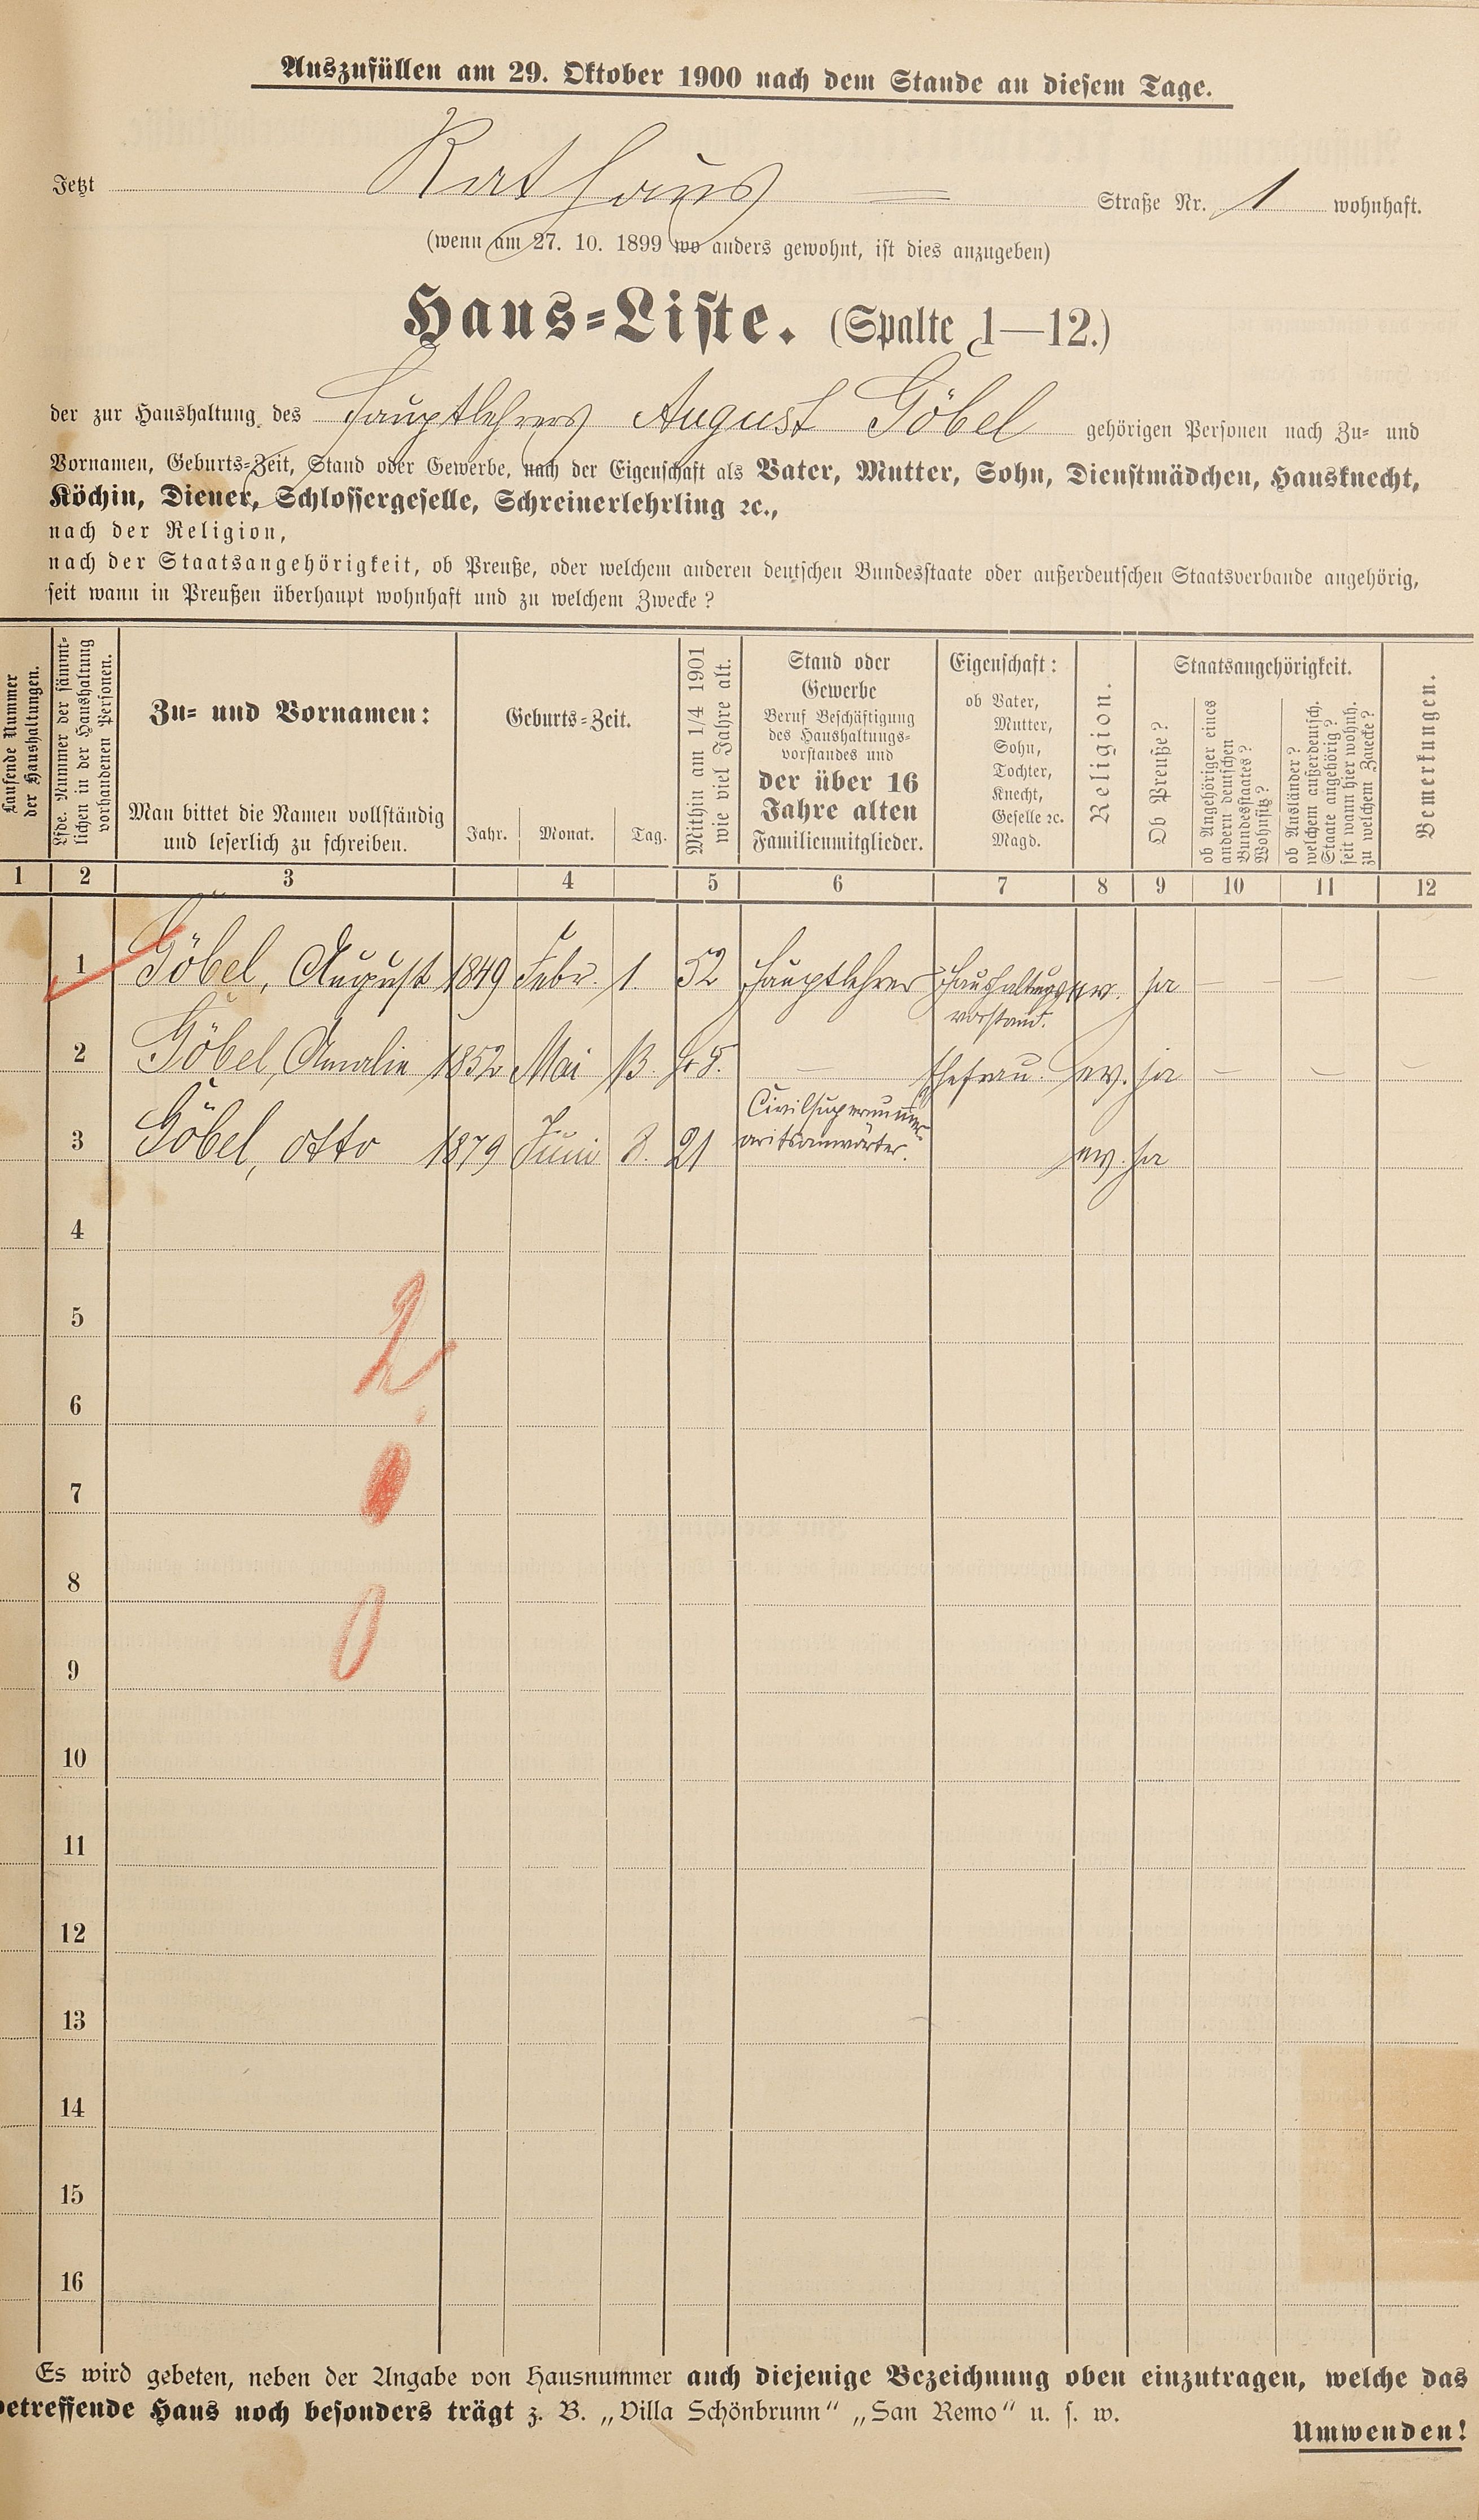 Auszufüllen am 29. Oktober 1900 nach dem Stande an diesem Tage.
Jetzt Rathaus Straße Nr. 1 wohnhaft.
(wenn am 27. 10. 1899 wo anders gewohnt, ist dies anzugeben)
Haus-Liste. (Spalte 1—12.)
der zur Haushaltung des Hauptlehrers August Göbel gehörigen Personen nach Zu- und
Vornamen, Geburts-Zeit, Stand oder Gewerbe, nach der Eigenschaft als Vater, Mutter, Sohn, Dienstmädchen, Hausknecht,
Köchin, Diener, Schlossergeselle, Schreinerlehrling ꝛc.,
nach der Religion,
nach der Staatsangehörigkeit, ob Preuße, oder welchem anderen deutschen Bundesstaate oder außerdeutschen Staatsverbande angehörig,
seit wann in Preußen überhaupt wohnhaft und zu welchem Zwecke?
Laufende Nummer
der Haushaltungen.
Lfde. Nummer der sämmt-
lichen in der Haushaltung
vorhandenen Personen.
Zu- und Vornamen:
Man bittet die Namen vollständig
und leserlich zu schreiben.
Geburts-Zeit.
Jahr. Monat. Tag.
Mithin am 1/4 1901
wie viel Jahre alt.
Stand oder
Gewerbe
Beruf Beschäftigung
des Haushaltungs-
vorstandes und
der über 16
Jahre alten
Familienmitglieder.
Eigenschaft:
ob Vater,
Mutter,
Sohn,
Tochter,
Knecht,
Geselle ꝛc.
Magd.
Religion.
Staatsangehörigkeit.
Ob Preuße?
ob Angehöriger eines
andern deutschen
Bundesstaates?
Wohnsitz?
ob Ausländer?
welchem außerdeutsch.
Staate angehörig?
seit wann hier wohnh.
zu welchem Zwecke?
Bemerkungen.
1 2 3 4 5 6 7 8 9 10 11 12
1 Göbel, August 1849 Febr. 1. 52 Hauptlehrer Haushaltungs ev. ja — — —
vorstand.
2 Göbel, Amalie 1852 Mai 13. — Ehefrau. ev. ja — — —
Civilsupernumer-
3 Göbel, Otto 1879 Juni 8. 21 aritsanwärter. ev. ja
4
5
2
6
7
8
0
9
10
11
12
13
14
15
16
Es wird gebeten, neben der Angabe von Hausnummer auch diejenige Bezeichnung oben einzutragen, welche das
betreffende Haus noch besonders trägt z. B. „Villa Schönbrunn“ „San Remo“ u. s. w.
Umwenden!